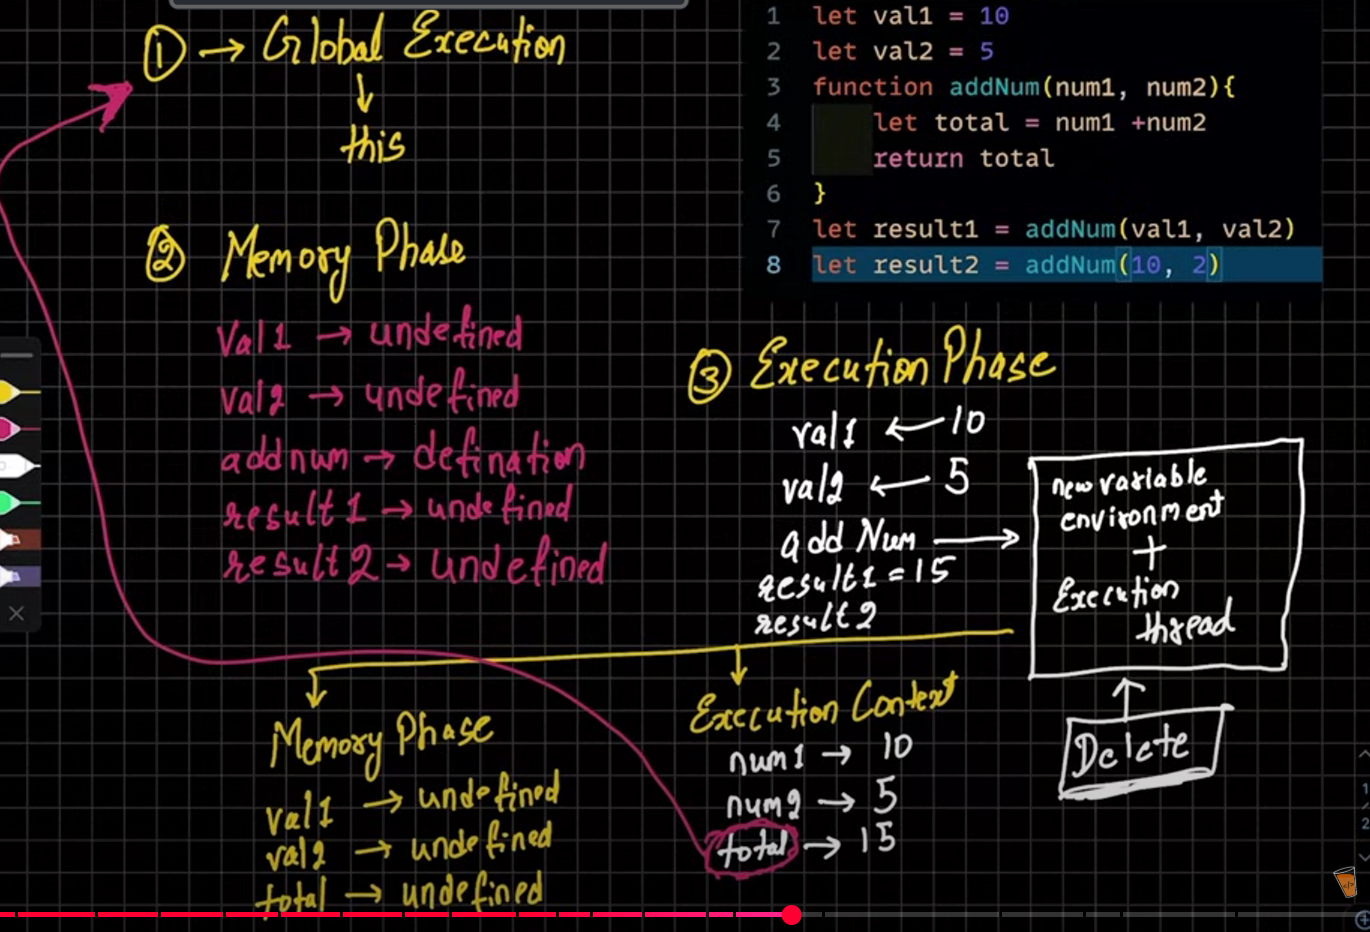 ① → Global Execution
this
② Memory Phase
val1 → undefined
val2 → undefined
addnum → defination
result1 → undefined
result2 → undefined
1 let val1 = 10
2 let val2 = 5
3 function addNum(num1, num2){
4 let total = num1 +num2
5 return total
6 }
7 let result1 = addNum(val1, val2)
8 let result2 = addNum(10, 2)
③ Execution Phase
val1 ← 10
val2 ← 5
add Num →
result1 = 15
result2
new variable
environment
+
Execution
thread
Delete
Memory Phase
val1 → undefined
val2 → undefined
total → undefined
Execution Context
num1 → 10
num2 → 5
total → 15